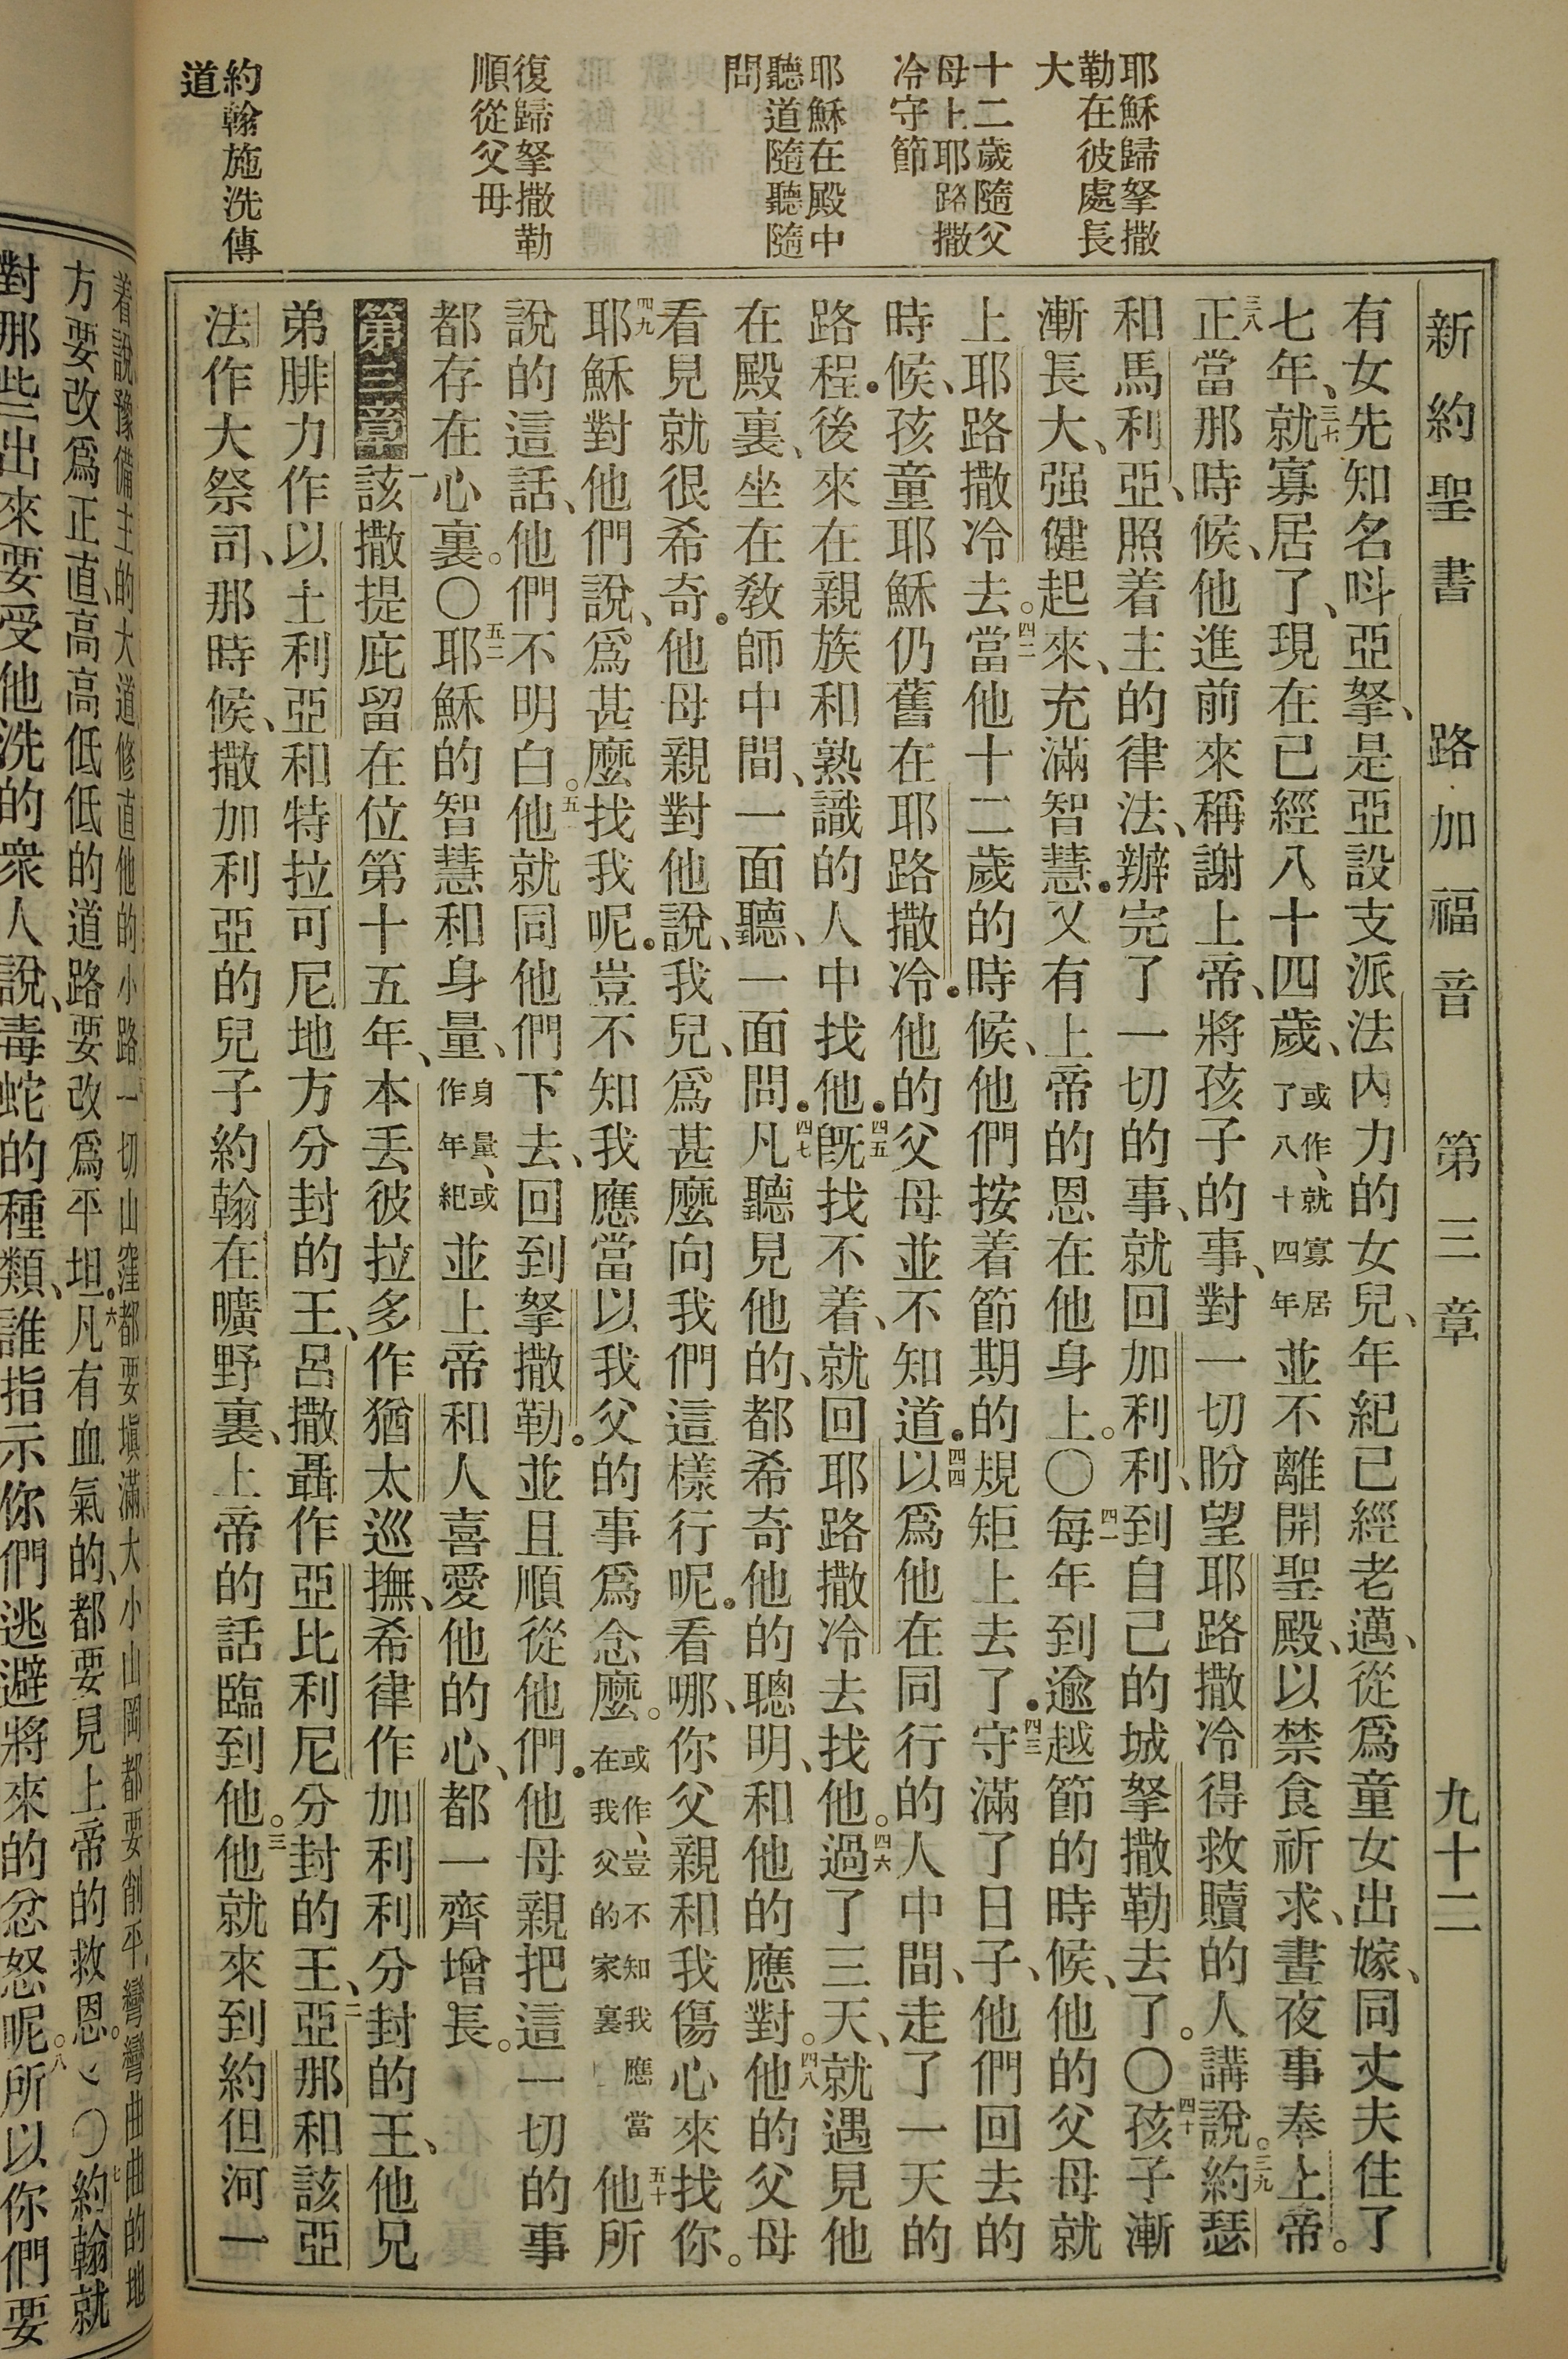 新約聖書 路加福音 第三章 九十二
耶穌歸拏撒
勒在彼處長
大
十二歲隨父
母上耶路撒
冷守節
耶穌在殿中
聽道隨聽隨
問
復歸拏撒勒
順從父母
約翰施洗傳
道
有女先知名呌亞拏、是亞設支派法內力的女兒、年紀已經老邁、從爲童女出嫁、同丈夫住了
七年、三七就寡居了、現在已經八十四歲、或作、就寡居了八十四年並不離開聖殿、以禁食祈求、晝夜事奉上帝。
三八正當那時候、他進前來稱謝上帝、將孩子的事、對一切盼望耶路撒冷得救贖的人講說。三九約瑟
和馬利亞、照着主的律法、辦完了一切的事、就回加利利、到自己的城拏撒勒去了。〇四十孩子漸
漸長大、强健起來、充滿智慧.又有上帝的恩在他身上。〇四一每年到逾越節的時候、他的父母就
上耶路撒冷去。四二當他十二歲的時候、他們按着節期的規矩上去了.四三守滿了日子、他們回去的
時候、孩童耶穌仍舊在耶路撒冷.他的父母並不知道.四四以爲他在同行的人中間、走了一天的
路程.後來在親族和熟識的人中找他.四五旣找不着、就回耶路撒冷去找他。四六過了三天、就遇見他
在殿裏、坐在教師中間、一面聽、一面問.四七凡聽見他的、都希奇他的聰明、和他的應對。四八他的父母
看見就很希奇.他母親對他說、我兒、爲甚麼向我們這樣行呢.看哪、你父親和我傷心來找你。
四九耶穌對他們說、爲甚麼找我呢.豈不知我應當以我父的事爲念麼。或作、豈不知我應當在我父的家裏五十他所
說的這話、他們不明白。五一他就同他們下去、回到拏撒勒.並且順從他們.他母親把這一切的事
都存在心裏。〇五二耶穌的智慧和身量、身量、或作年紀並上帝和人喜愛他的心、都一齊增長。
第三章一該撒提庇留在位第十五年、本丟彼拉多作猶太巡撫、希律作加利利分封的王、他兄
弟腓力作以土利亞和特拉可尼地方分封的王、呂撒聶作亞比利尼分封的王、二亞那和該亞
法作大祭司、那時候、撒加利亞的兒子約翰在曠野裏、上帝的話臨到他。三他就來到約但河一
着說豫備主的大道修直他的小路一切山窪都要塡滿、大小山岡都要削平、彎彎曲曲的地
方要改爲正直、高高低低的道路要改爲平坦.六凡有血氣的、都要見上帝的救恩。〇七約翰就
對那些出來要受他洗的衆人說、毒蛇的種類、誰指示你們逃避將來的忿怒呢。八所以你們要